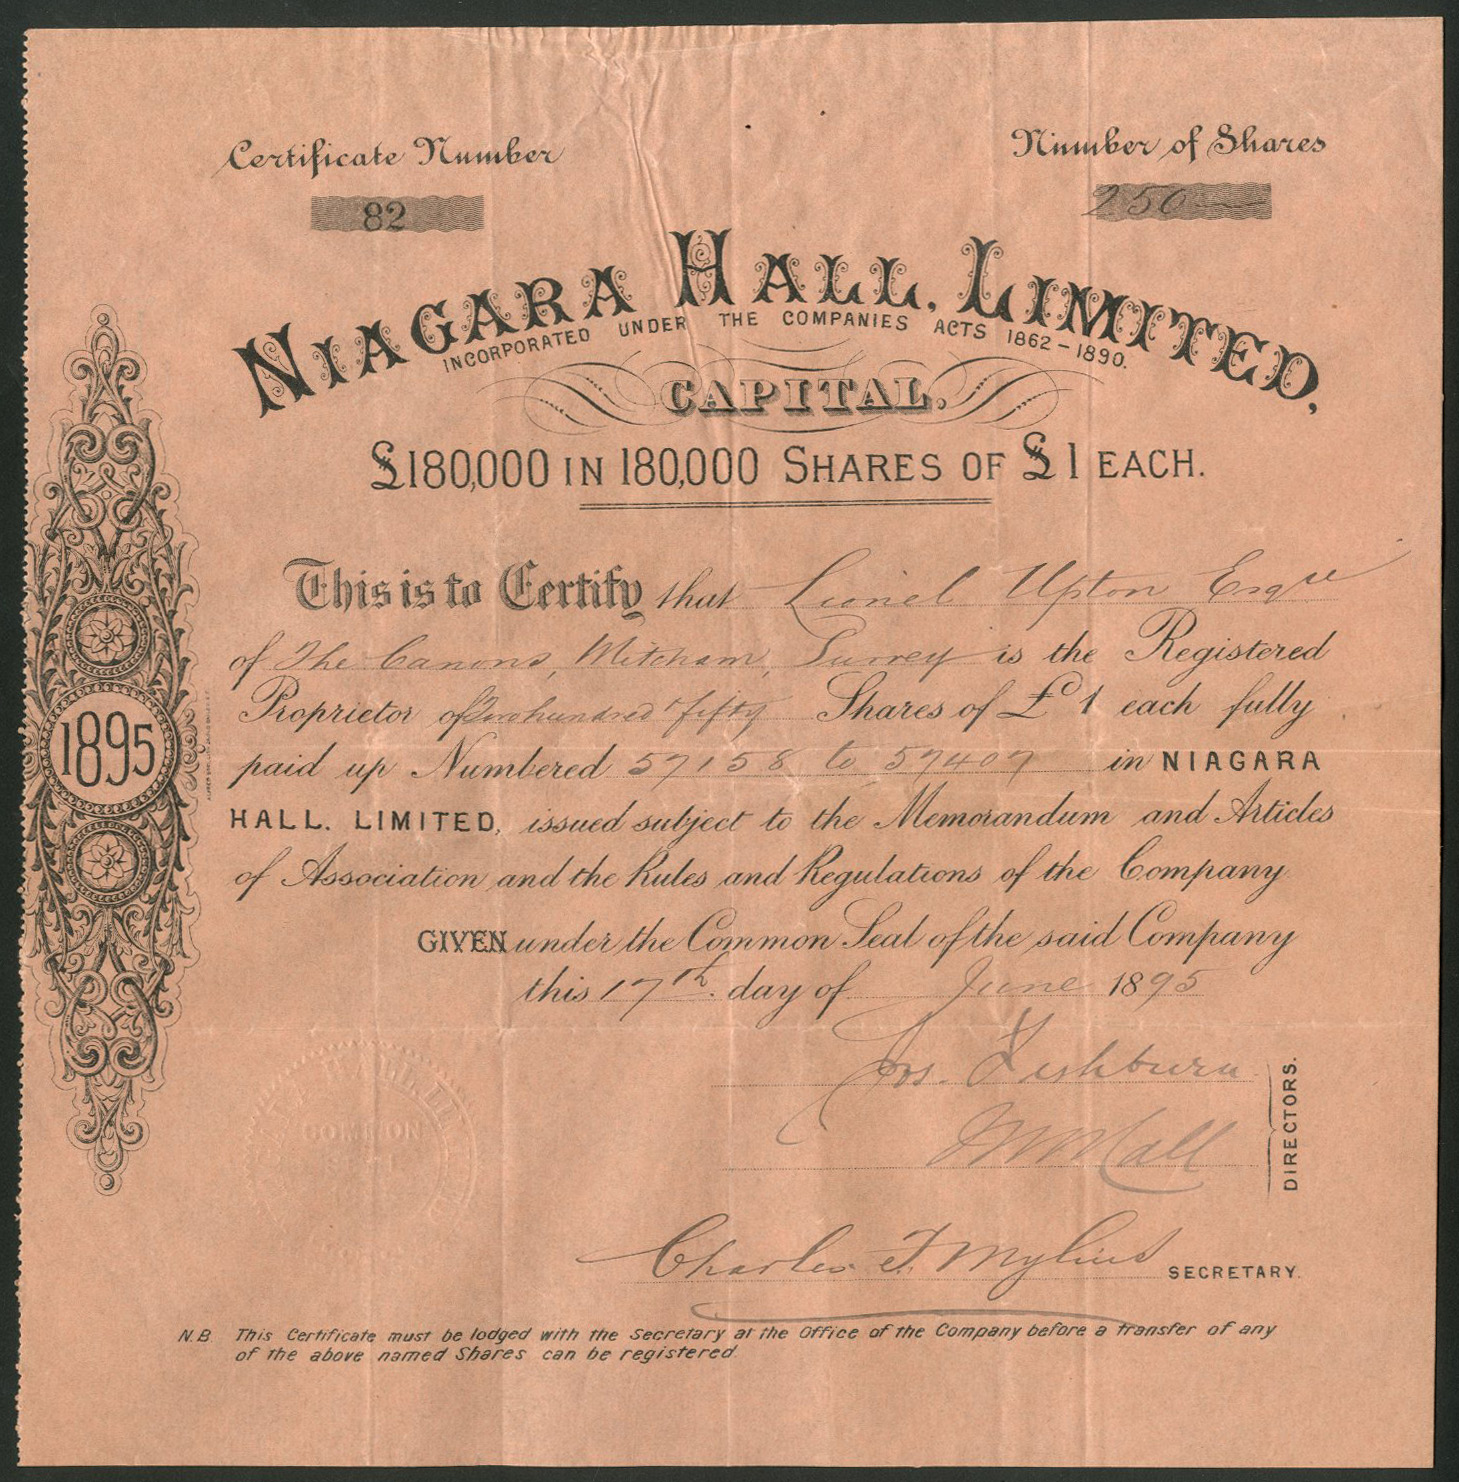 Certificate Number
82
Number of Shares
250
NIAGARA HALL, LIMITED,
INCORPORATED UNDER THE COMPANIES ACTS 1862-1890.
CAPITAL.
£180,000 IN 180,000 SHARES OF £1 EACH.
This is to Certify that Lionel Upton Esqre
of The Canons, Mitcham, Surrey is the Registered
Proprietor of Two hundred & fifty Shares of £1 each fully
paid up Numbered 57158 to 57407 in NIAGARA
HALL. LIMITED, issued subject to the Memorandum and Articles
of Association and the Rules and Regulations of the Company
GIVEN under the Common Seal of the said Company
this 17th. day of June 1895
1895
Jos. Fishburn
Hall
DIRECTORS.
Charles F. Mylius SECRETARY.
COMMON
SEAL
N.B. This Certificate must be lodged with the Secretary at the Office of the Company before a transfer of any
of the above named Shares can be registered.